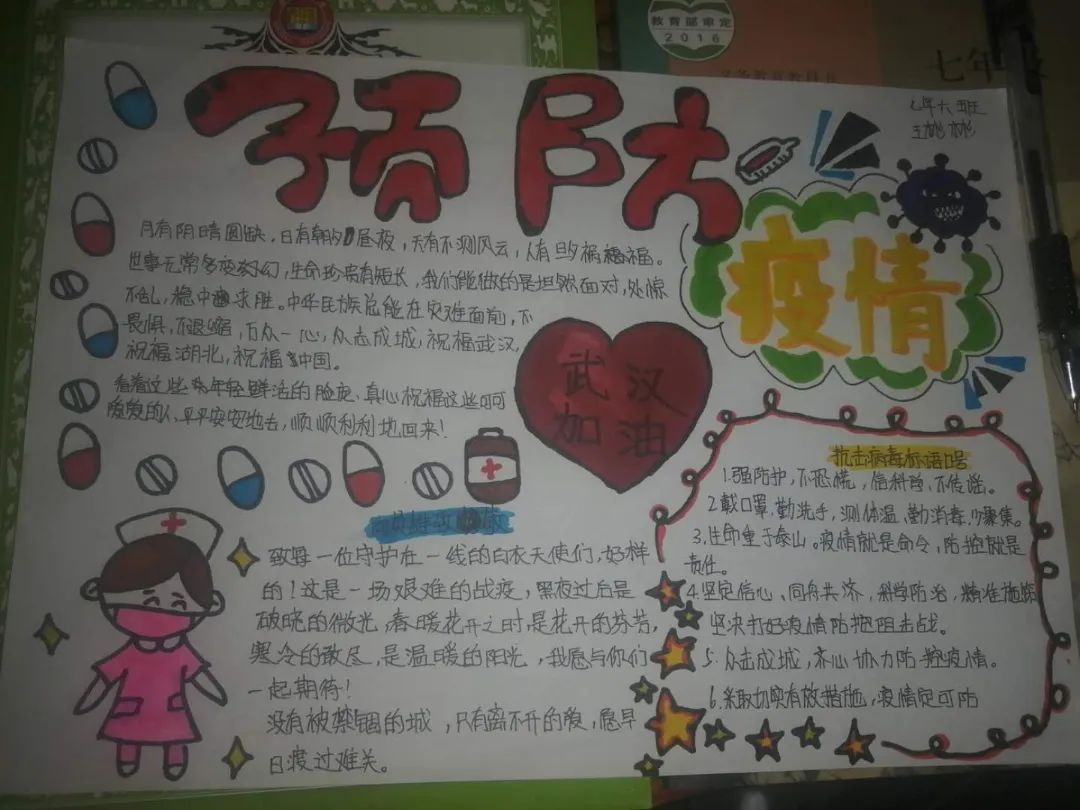 教育部审定
2016
义务教育教科书
七年级
七年六班
预防
疫情
月有阴晴圆缺,日有朝夕昼夜,天有不测风云,人有旦夕祸福。
世事无常多变幻,生命珍贵有短长,我们能做的是坦然面对,处惊
不乱,稳中求胜。中华民族总能在灾难面前,不
畏惧,不退缩,万众一心,众志成城,祝福武汉,
祝福湖北,祝福中国。
看着这些年轻鲜活的脸庞,真心祝福这些可可
爱爱的人,平平安安地去,顺顺利利地回来!
武汉
加油
致每一位守护在一线的白衣天使们,好样
的!这是一场艰难的战疫,黑夜过后是
破晓的微光,春暖花开之时,是花开的芬芳,
寒冷的散尽,是温暖的阳光,我愿与你们
一起期待!
没有被禁锢的城,只有离不开的爱,愿早
日渡过难关。
抗击病毒标语口号
1.强防护,不恐慌,信科学,不传谣。
2.戴口罩,勤洗手,测体温,勤消毒,少聚集。
3.生命重于泰山。疫情就是命令,防控就是
责任。
4.坚定信心、同舟共济,科学防治,精准施策
坚决打好疫情防控阻击战。
5.众志成城,齐心协力防控疫情。
6.采取切实有效措施,疫情定可防